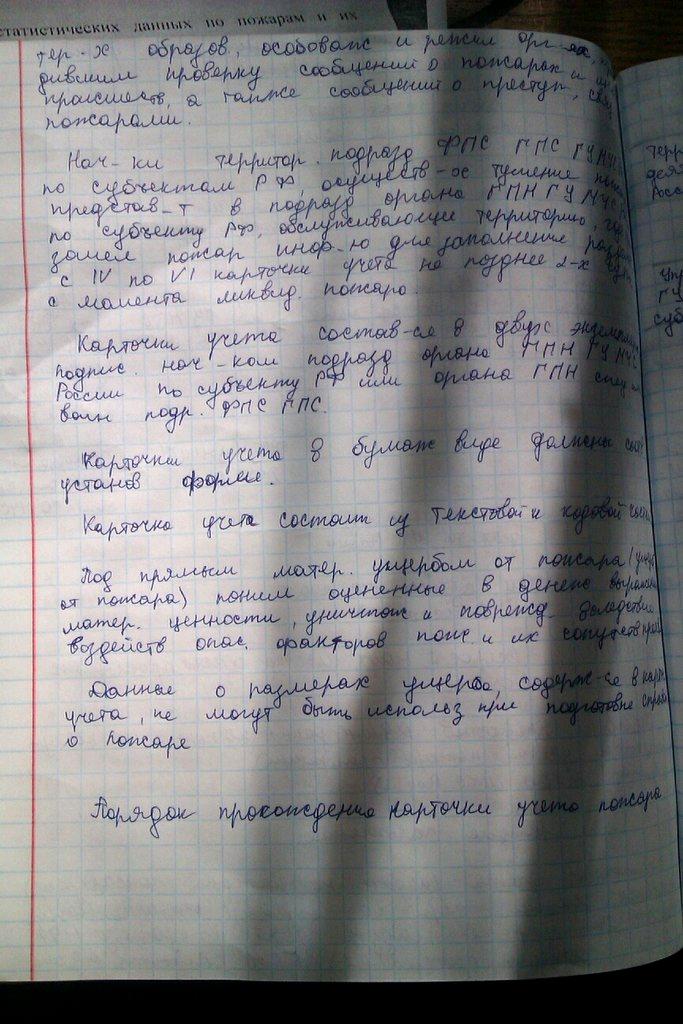 статистических данных по пожарам и их
тер-х образов, особоважс и режим орг-ах,
дившим проверку сообщений о пожарах и
происшеств, а также сообщений о преступ,
пожарами.
Нач-ки территор. подразд ФПС ГПС ГУ МЧС
по субъектам РФ, осуществ-ие тушение
представ-т в подразд органа ГПН ГУ МЧС
по субъекту РФ, обслуживающее территорию, где
пожар инф-ю для заполнения
с IV по VI карточки учета не позднее 2-х
с момента ликвид. пожара.
Карточки учета состав-ся в двух
подпис. нач-ком подразд органа ГПН ГУ МЧС
России по субъекту РФ или органа ГПН спец и
воин подр. ФПС ГПС.
Карточки учета в бумаж виде должны
установ форме.
Карточка учета состоит из текстовой и кодовой
Под прямым матер. ущербом от пожара (ущерб
от пожара) поним оцененные в денеж
матер. ценности, уничтож и поврежд. вследствие
воздейств опас. факторов пож. и их сопутств
Данные о размерах ущерба, содерж-ся в карт
учета, не могут быть использ при подготовке
о пожаре
Порядок прохождения карточки учета пожара
терр
Росс
Упр
ГУ
суб